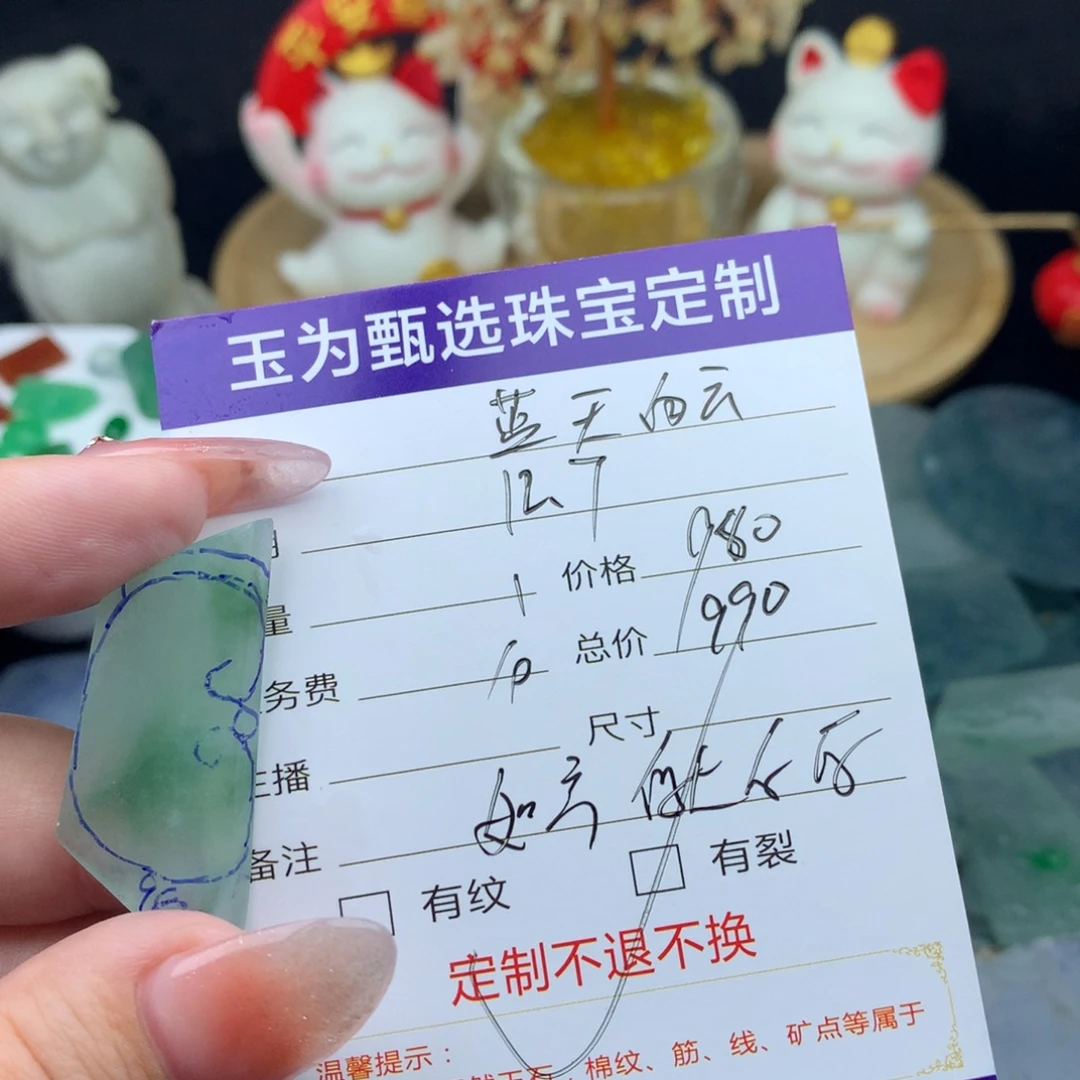 玉为甄选珠宝定制
蓝天白云
12.7
量 1 价格 980
务费 10 总价 990
尺寸
主播
备注 如意
有纹 有裂
定制不退不换
温馨提示：
棉纹、筋、线、矿点等属于